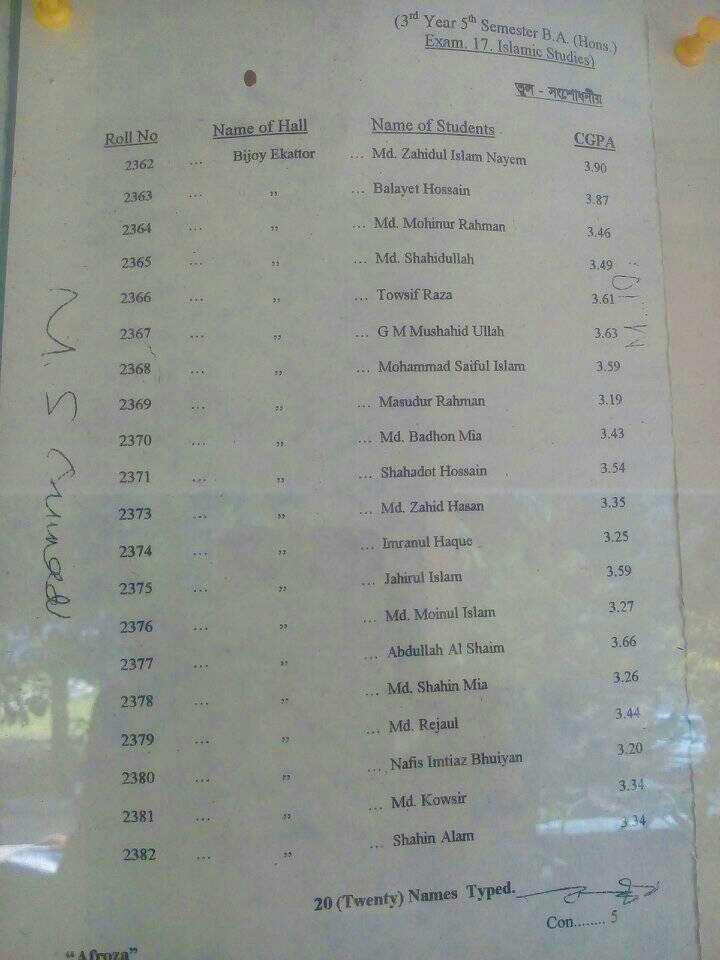 (3rd Year 5th Semester B.A. (Hons.)
Exam. 17. Islamic Studies)
ভুল - সংশোধনীয়
Roll No Name of Hall Name of Students CGPA
2362 ... Bijoy Ekattor ... Md. Zahidul Islam Nayem 3.90
2363 ... ,, ... Balayet Hossain 3.87
2364 ... ,, ... Md. Mohinur Rahman 3.46
2365 ... ,, ... Md. Shahidullah 3.49
2366 ... ,, ... Towsif Raza 3.61
2367 ... ,, ... G M Mushahid Ullah 3.63
2368 ... ,, ... Mohammad Saiful Islam 3.59
2369 ... ,, ... Masudur Rahman 3.19
2370 ... ,, ... Md. Badhon Mia 3.43
2371 ... ,, ... Shahadot Hossain 3.54
2373 ... ,, ... Md. Zahid Hasan 3.35
2374 ... ,, ... Imranul Haque 3.25
2375 ... ,, ... Jahirul Islam 3.59
2376 ... ,, ... Md. Moinul Islam 3.27
2377 ... ,, ... Abdullah Al Shaim 3.66
2378 ... ,, ... Md. Shahin Mia 3.26
2379 ... ,, ... Md. Rejaul 3.44
2380 ... ,, ... Nafis Imtiaz Bhuiyan 3.20
2381 ... ,, ... Md. Kowsir 3.34
2382 ... ,, ... Shahin Alam 3.34
20 (Twenty) Names Typed.
Con........ 5
"Afroza"